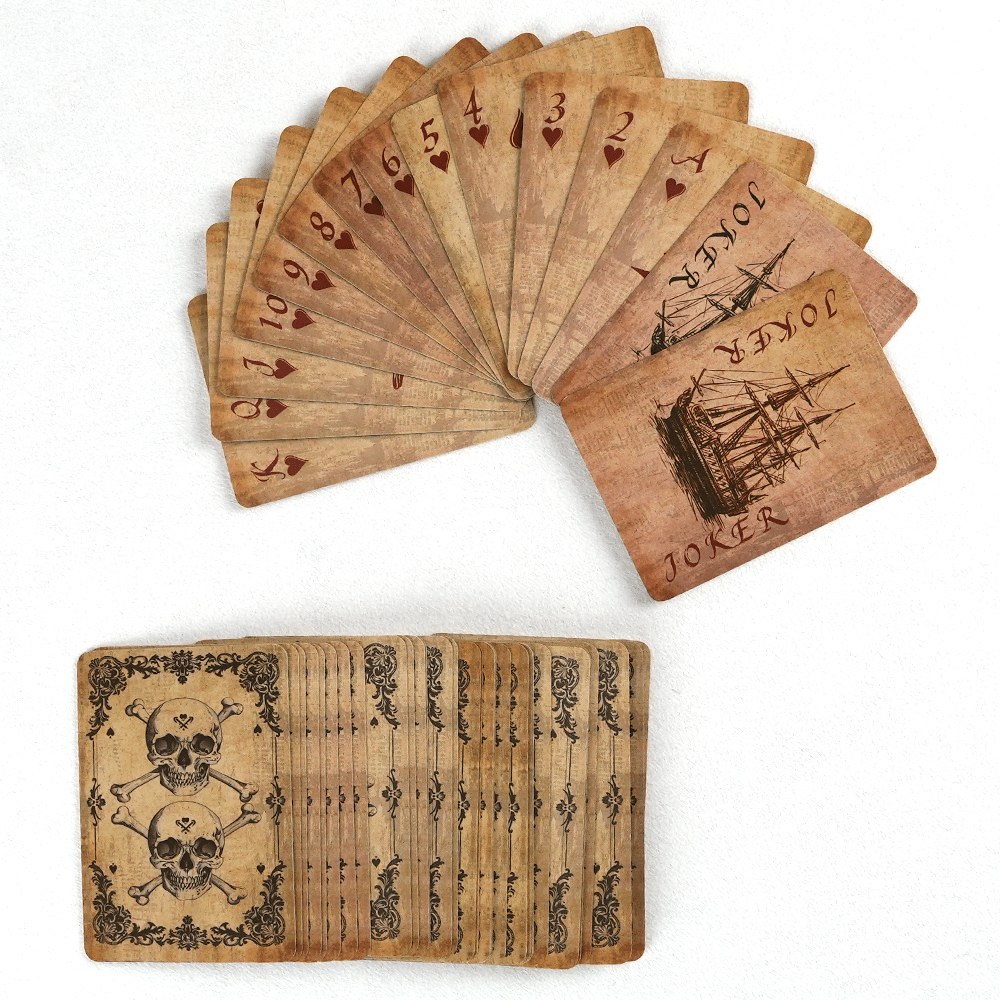 K
Q
J
10
9
8
7
6
5
4
3
2
A
JOKER
JOKER
JOKER